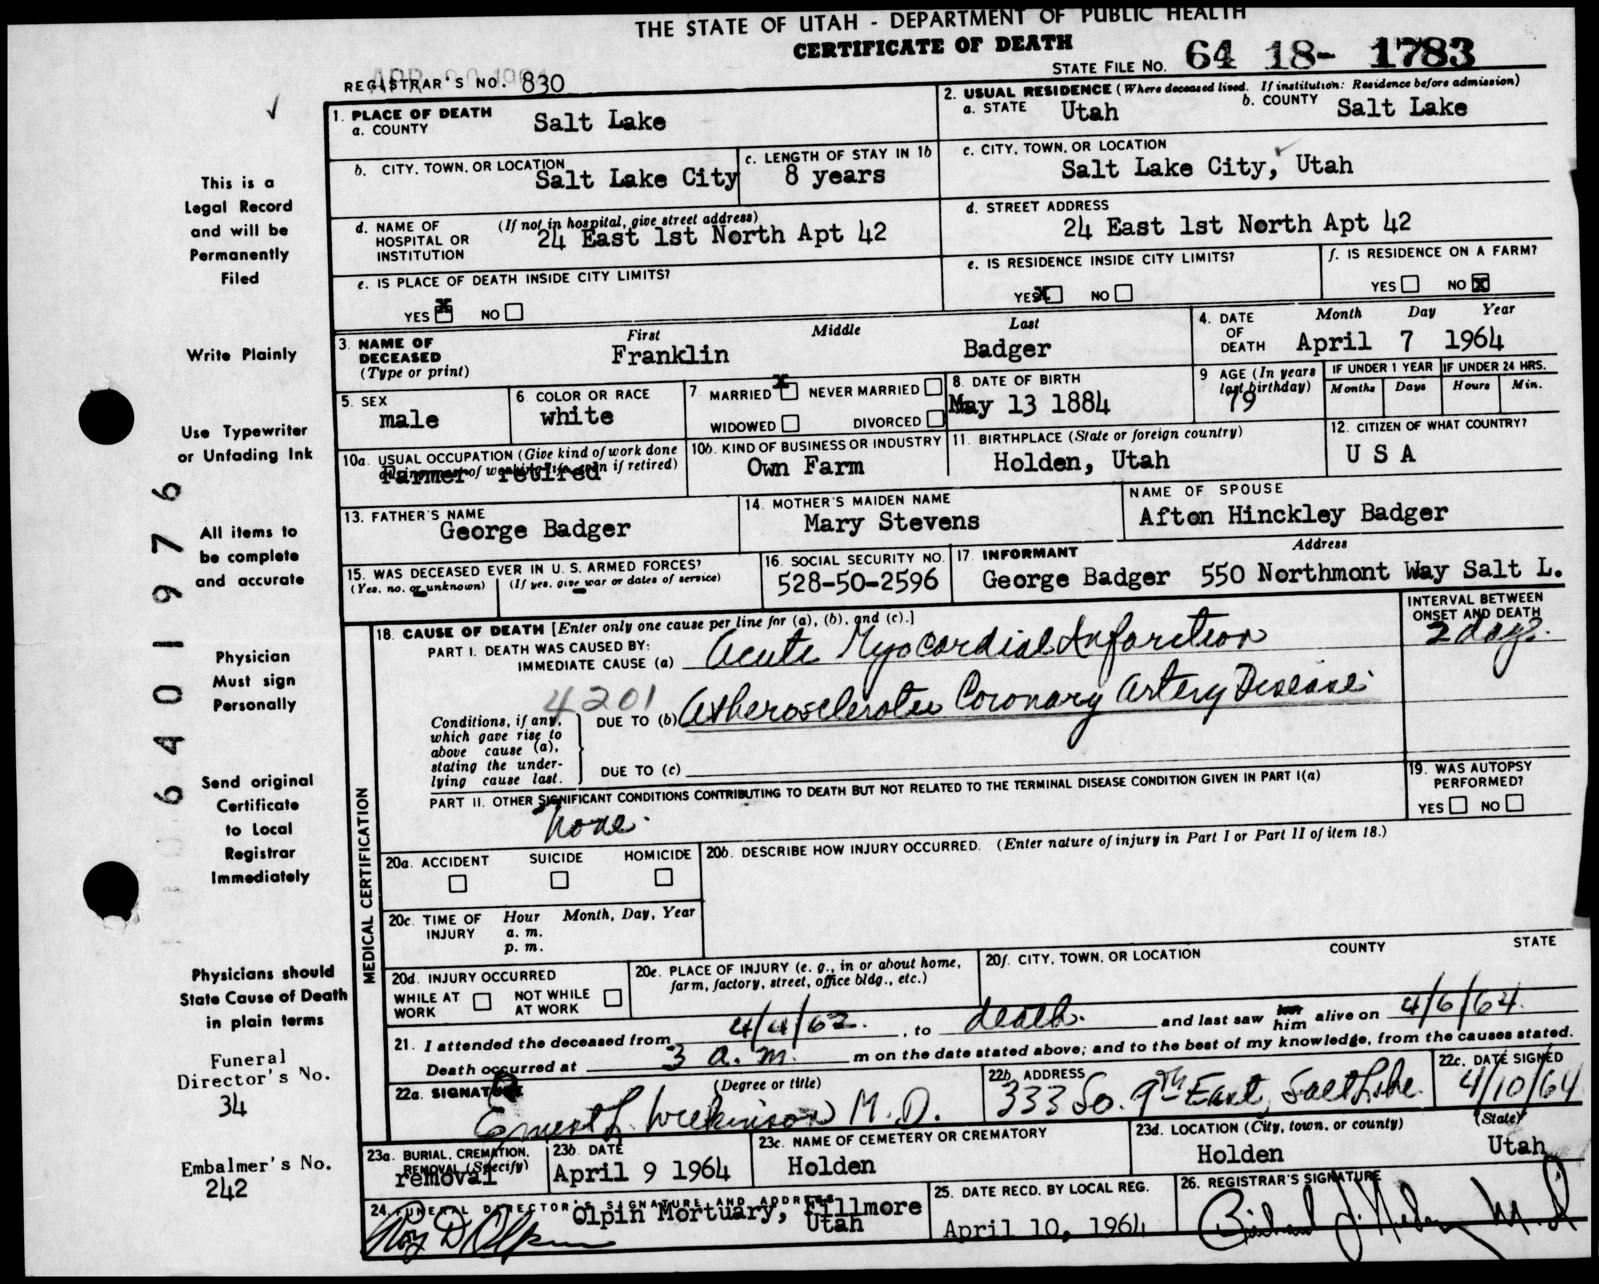 THE STATE OF UTAH - DEPARTMENT OF PUBLIC HEALTH
CERTIFICATE OF DEATH
STATE FILE NO. 64 18- 1783
REGISTRAR'S NO. 830
1. PLACE OF DEATH
a. COUNTY Salt Lake
2. USUAL RESIDENCE (Where deceased lived. If institution: Residence before admission)
a. STATE Utah b. COUNTY Salt Lake
b. CITY, TOWN, OR LOCATION Salt Lake City
c. LENGTH OF STAY IN 1b 8 years
c. CITY, TOWN, OR LOCATION
Salt Lake City, Utah
d. NAME OF HOSPITAL OR INSTITUTION (If not in hospital, give street address)
24 East 1st North Apt 42
d. STREET ADDRESS
24 East 1st North Apt 42
e. IS PLACE OF DEATH INSIDE CITY LIMITS?
YES X NO
e. IS RESIDENCE INSIDE CITY LIMITS?
YES X NO
f. IS RESIDENCE ON A FARM?
YES NO X
3. NAME OF DECEASED (Type or print)
First Middle Last
Franklin Badger
4. DATE OF DEATH Month Day Year
April 7 1964
5. SEX
male
6. COLOR OR RACE
white
7. MARRIED X NEVER MARRIED
WIDOWED DIVORCED
8. DATE OF BIRTH
May 13 1884
9. AGE (In years last birthday)
79
IF UNDER 1 YEAR
Months Days
IF UNDER 24 HRS.
Hours Min.
10a. USUAL OCCUPATION (Give kind of work done
if retired)
Farmer retired
10b. KIND OF BUSINESS OR INDUSTRY
Own Farm
11. BIRTHPLACE (State or foreign country)
Holden, Utah
12. CITIZEN OF WHAT COUNTRY?
U S A
13. FATHER'S NAME
George Badger
14. MOTHER'S MAIDEN NAME
Mary Stevens
NAME OF SPOUSE
Afton Hinckley Badger
15. WAS DECEASED EVER IN U. S. ARMED FORCES?
(Yes, no, or unknown) (If yes, give war or dates of service)
16. SOCIAL SECURITY NO.
528-50-2596
17. INFORMANT Address
George Badger 550 Northmont Way Salt L.
MEDICAL CERTIFICATION
18. CAUSE OF DEATH [Enter only one cause per line for (a), (b), and (c).]
INTERVAL BETWEEN ONSET AND DEATH
PART I. DEATH WAS CAUSED BY:
IMMEDIATE CAUSE (a) Acute Myocardial Infarction
2 days.
4201
Conditions, if any,
which gave rise to
above cause (a),
stating the under-
lying cause last.
DUE TO (b) Atherosclerotic Coronary Artery Disease
DUE TO (c)
PART II. OTHER SIGNIFICANT CONDITIONS CONTRIBUTING TO DEATH BUT NOT RELATED TO THE TERMINAL DISEASE CONDITION GIVEN IN PART I(a)
None.
19. WAS AUTOPSY PERFORMED?
YES NO
20a. ACCIDENT SUICIDE HOMICIDE
20b. DESCRIBE HOW INJURY OCCURRED. (Enter nature of injury in Part I or Part II of item 18.)
20c. TIME OF INJURY Hour Month, Day, Year
a. m.
p. m.
20d. INJURY OCCURRED
WHILE AT WORK NOT WHILE AT WORK
20e. PLACE OF INJURY (e. g., in or about home,
farm, factory, street, office bldg., etc.)
20f. CITY, TOWN, OR LOCATION COUNTY STATE
21. I attended the deceased from 4/4/62, to death. and last saw him alive on 4/6/64.
Death occurred at 3 a.m. m on the date stated above; and to the best of my knowledge, from the causes stated.
22a. SIGNATURE (Degree or title)
Ernest L. Wilkinson M.D.
22b. ADDRESS
333 So. 9th East, Salt Lake
22c. DATE SIGNED
4/10/64
23a. BURIAL, CREMATION, REMOVAL (Specify)
removal
23b. DATE
April 9 1964
23c. NAME OF CEMETERY OR CREMATORY
Holden
23d. LOCATION (City, town, or county) (State)
Holden Utah
24. FUNERAL DIRECTOR'S SIGNATURE AND ADDRESS
Olpin Mortuary, Fillmore
Utah
Roy D Olpin
25. DATE RECD. BY LOCAL REG.
April 10, 1964
26. REGISTRAR'S SIGNATURE
M.D.
This is a
Legal Record
and will be
Permanently
Filed
Write Plainly
Use Typewriter
or Unfading Ink
All items to
be complete
and accurate
Physician
Must sign
Personally
Send original
Certificate
to Local
Registrar
Immediately
Physicians should
State Cause of Death
in plain terms
Funeral
Director's No.
34
Embalmer's No.
242
6401976